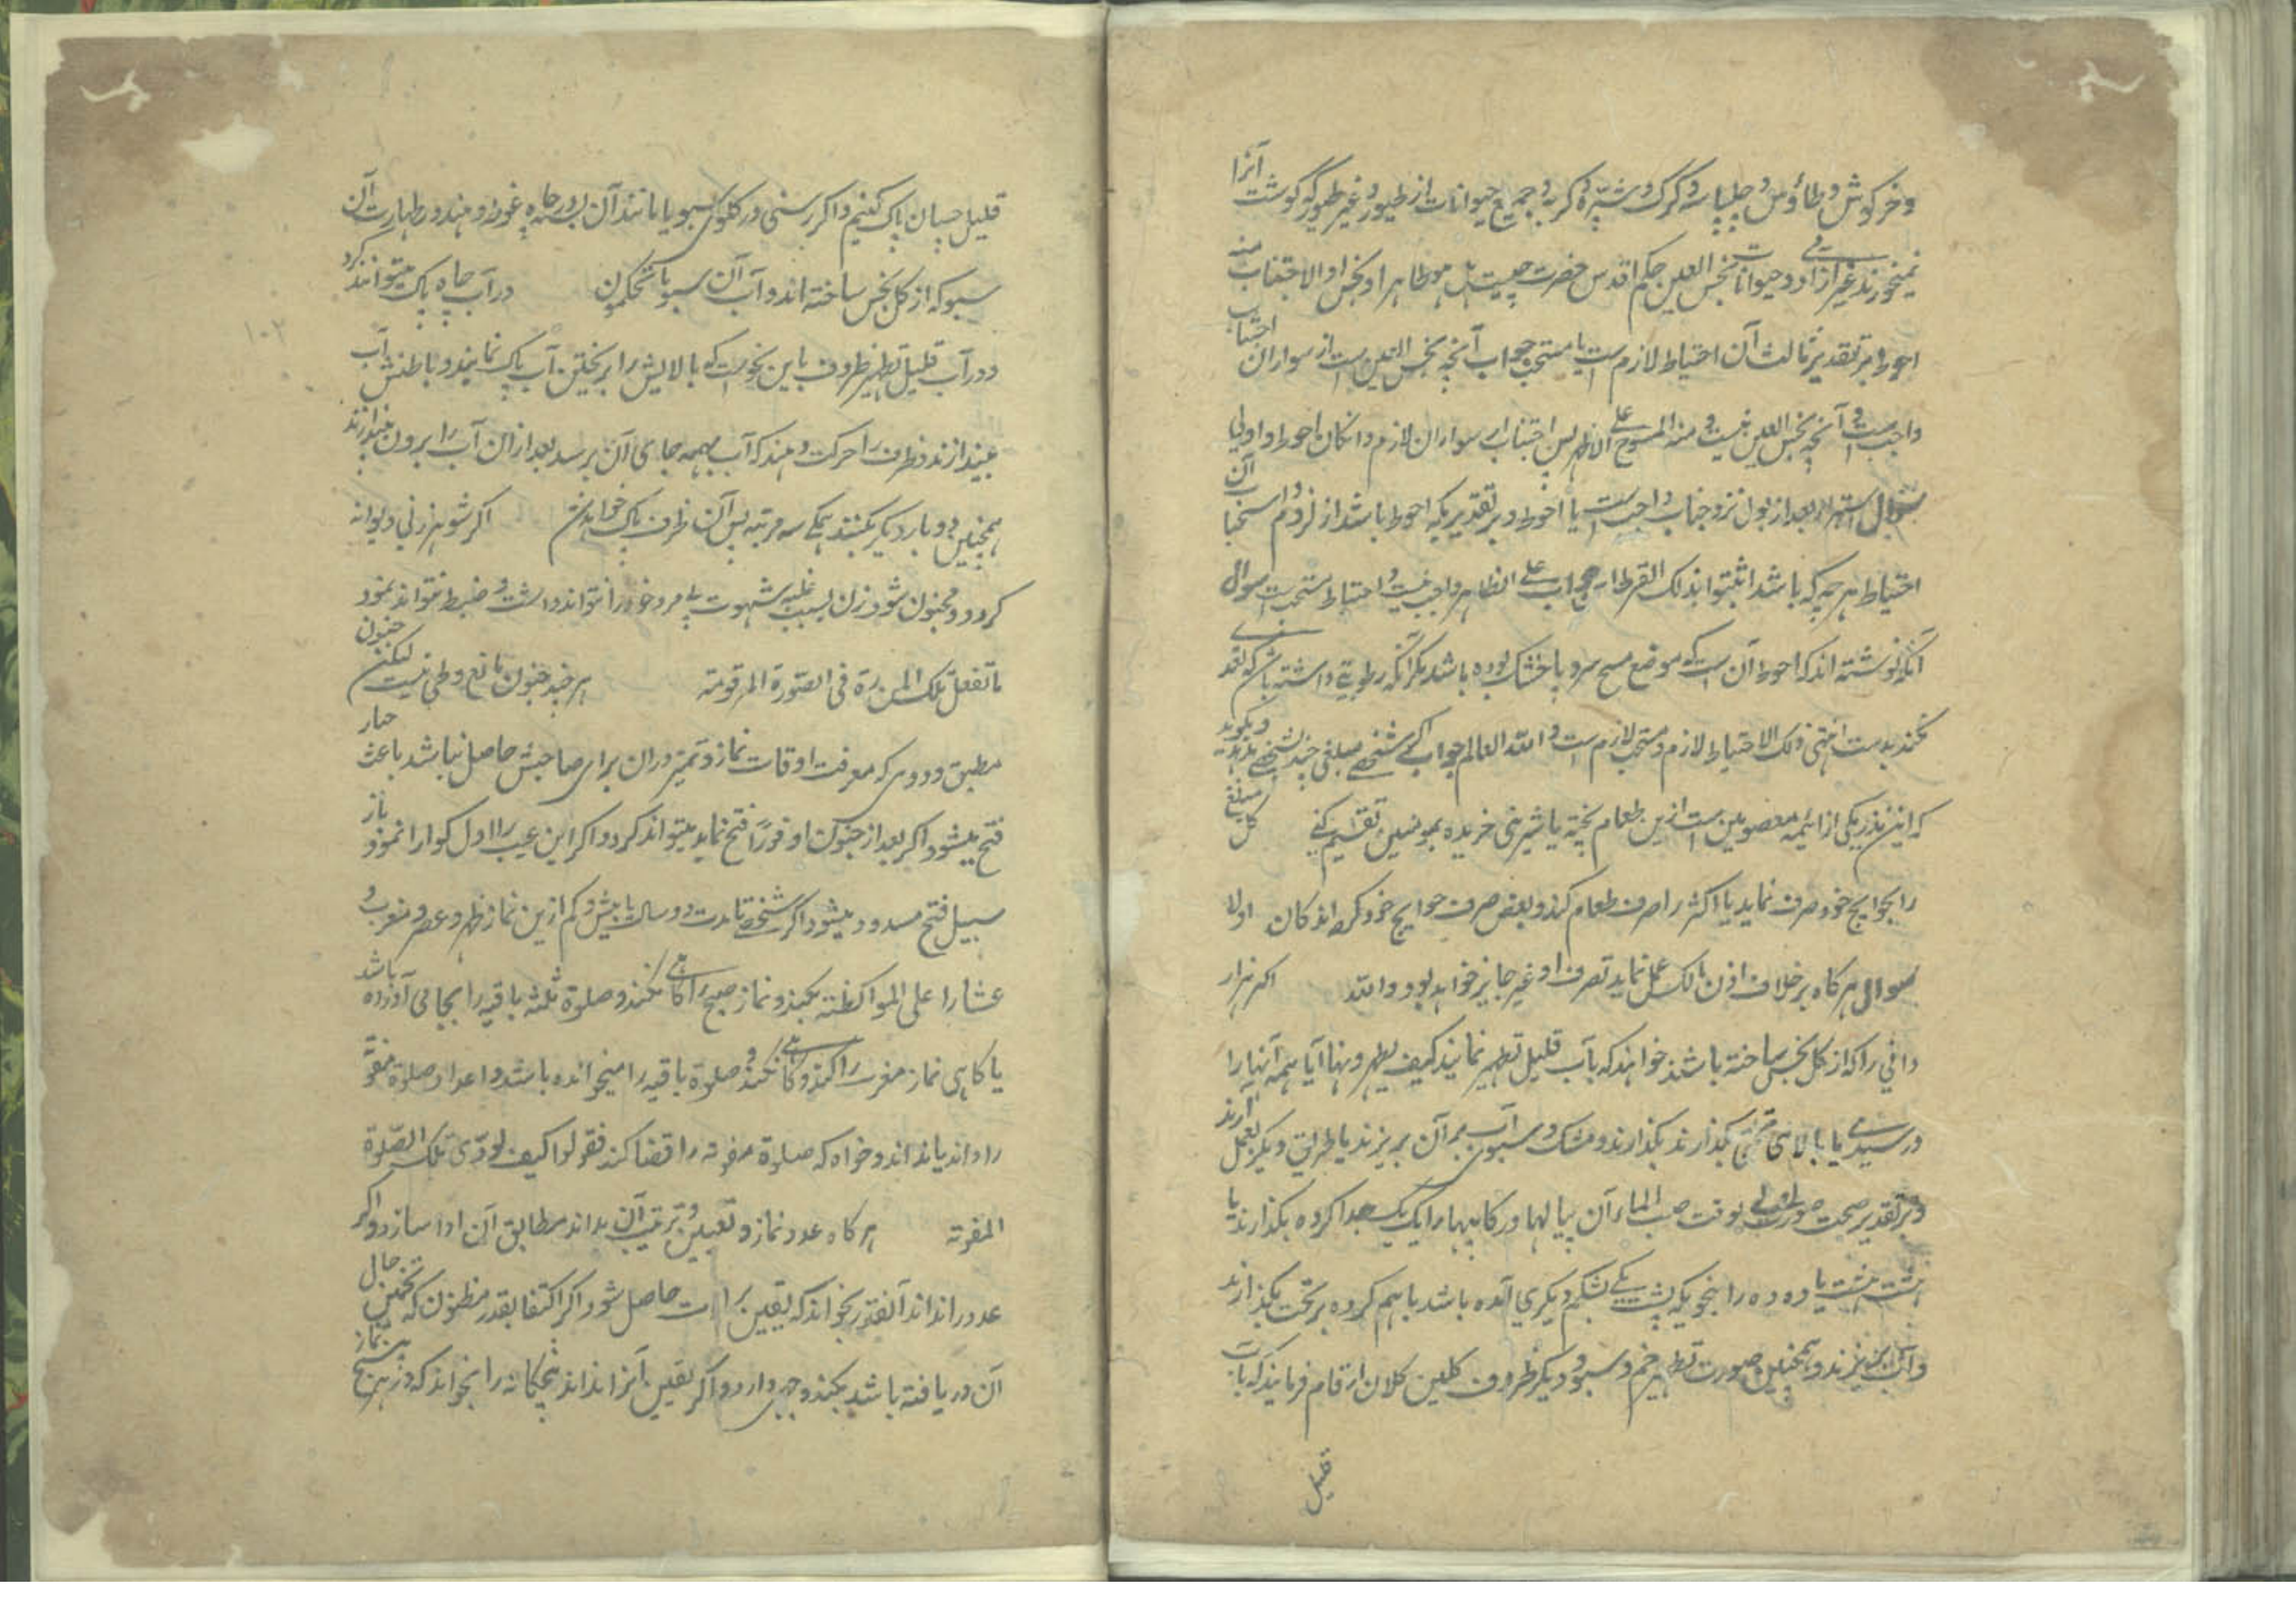 وخرکوش و طاؤس و چلپاسه و کرک و شپره و کربه و جمیع حیوانات از طیور و غیر طیور که کوشت آنرا
نمیخورند غیر از آدمی و حیوانات نجس العین حکم اقدس حضرت چیست بل هو طاهر او نجس او الاجتناب منه
احوط و بر تقدیر ثالث آن احتیاط لازم ست یا مستحب جواب آنچه نجس العین ست از سواران اجتناب
واجبست و آنچه نجس العین نیست و منه المسوخ علی الاظهر پس اجتناب از سواران لازم و انکان احوط و اولی
سوال استبراء بعد از بول نزد جناب واجب ست یا احوط و بر تقدیریکه احوط باشد از لزوم و استحباب آن
احتیاط هر چه که باشد اثبتوا بذلک القرطاس جواب علی الظاهر واجب نیست و احتیاط مستحب ست سوال
آنکه نوشته اند که احوط آن ست که موضع مسح سر و پا خشک بوده باشد مکر آنکه رطوبتی داشته باشد که
نکند بدست انتهی ذلک الاحتیاط لازم و مستحب لازم ست و الله العالم جواب اکر شخصی مبلغی چند بشخصی بدهد و بکوید
که این نذر یکی از ائمه معصومین ست ازین طعام پخته یا شیرینی خریده بمومنین تقسیم کنی کل مبلغ
را بحوایج خود صرف نماید یا اکثر را صرف طعام کند و بعض صرف حوایج خود کرده اند کان اولا
سوال هر کاه بر خلاف اذن مالک عمل نماید تصرف او غیر جایز خواهد بود و الله اکر هزار
دانی را که از کل نجس ساخته باشند خواهند که بآب قلیل تطهیر نمایند کیف یطهرونها آیا همه آنها را
در سبدی یا بالای تختی بکذارند بکذارند و مشک و سبوی آب بر آن بریزند یا طریق دیکر بعمل آرند
و بر تقدیر صحت صورت اولی بوقت صب الماء آن پیالها و رکابیها را یک یک جدا کرده بکذارند یا
هشت هشت یا ده ده را بنحویکه پشت یکی بشکم دیکری آمده باشد باهم کرده بر تخت بکذارند
و آب بریزند و همچنین صورت تطهیر خم و سبو و دیکر ظروف کلین کلان ارقام فرمایند که بآب
قلیل
قلیل چسان پاک کنیم و اکر رسنی در کلوی سبو یا مانند آن بسته در چاه غوطه دهند در طهارت آن
سبو که از کل نجس ساخته اند و آب آن سبو ما تحکمون در آب چاه پاک میتوانند کرد
و در آب قلیل تطهیر ظروف باین نحو ست که بالایش را بریختن آب پاک نمایند و باطنش آب
بیندازند و ظرف را حرکت دهند که آب بهمه جای آن برسد بعد از آن آب را برون بیندازند
همچنین دو بار دیکر بکنند همکی سه مرتبه پس آن ظرف پاک خواهد شد اکر شوهر زنی دیوانه
کردد و مجنون شود و زن بسبب غلبه شهوت بی مرد خود را نتواند داشت و ضبط نتواند نمود
ما تفعل تلک المرءة فی الصورة المرقومة هر چند جنون مانع وطی نیست لیکن جنون
مطبق و دوری که معرفت اوقات نماز و تمیز در آن برای صاحبش حاصل نباشد باعث خیار
فتح میشود اکر بعد از جنون او فورًا فتح نماید میتواند کرد و اکر این عیب را اول کوارا نمود باز
سبیل فتح مسدود میشود اکر شخصی تا مدت دو سال یا بیش و کم ازین نماز ظهر و عصر و مغرب و
عشا را علی المواظبة نکند و نماز صبح را کاهی نکند و صلوة ثلثه باقیه را بجا می آورده باشد
یا کاهی نماز مغرب را کند و کاهی نکند و صلوة باقیه را میخوانده باشد و اعداد صلوة مفوته
را داند یا نداند و خواهد که صلوة مفوته را قضا کند فقولوا کیف یؤدی تلک الصلوة
المفوته هر کاه عدد نماز و تعیین و ترتیب آن بداند مطابق آن ادا سازد و اکر
عدد را نداند آنقدر بخواند که یقین براءت حاصل شود و اکر اکتفا بقدر مظنون که تخمین حال
آن دریافته باشد بکند وجهی دارد و اکر یقین آنرا نداند پنجکانه را بخواند که در هر پنج نماز